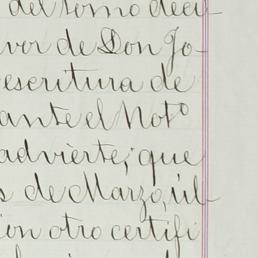 del tomo deci
vor de Don Jo-
escritura de
ante el Notº
advierte; que
s de Marzo, úl-
ion otro certifi